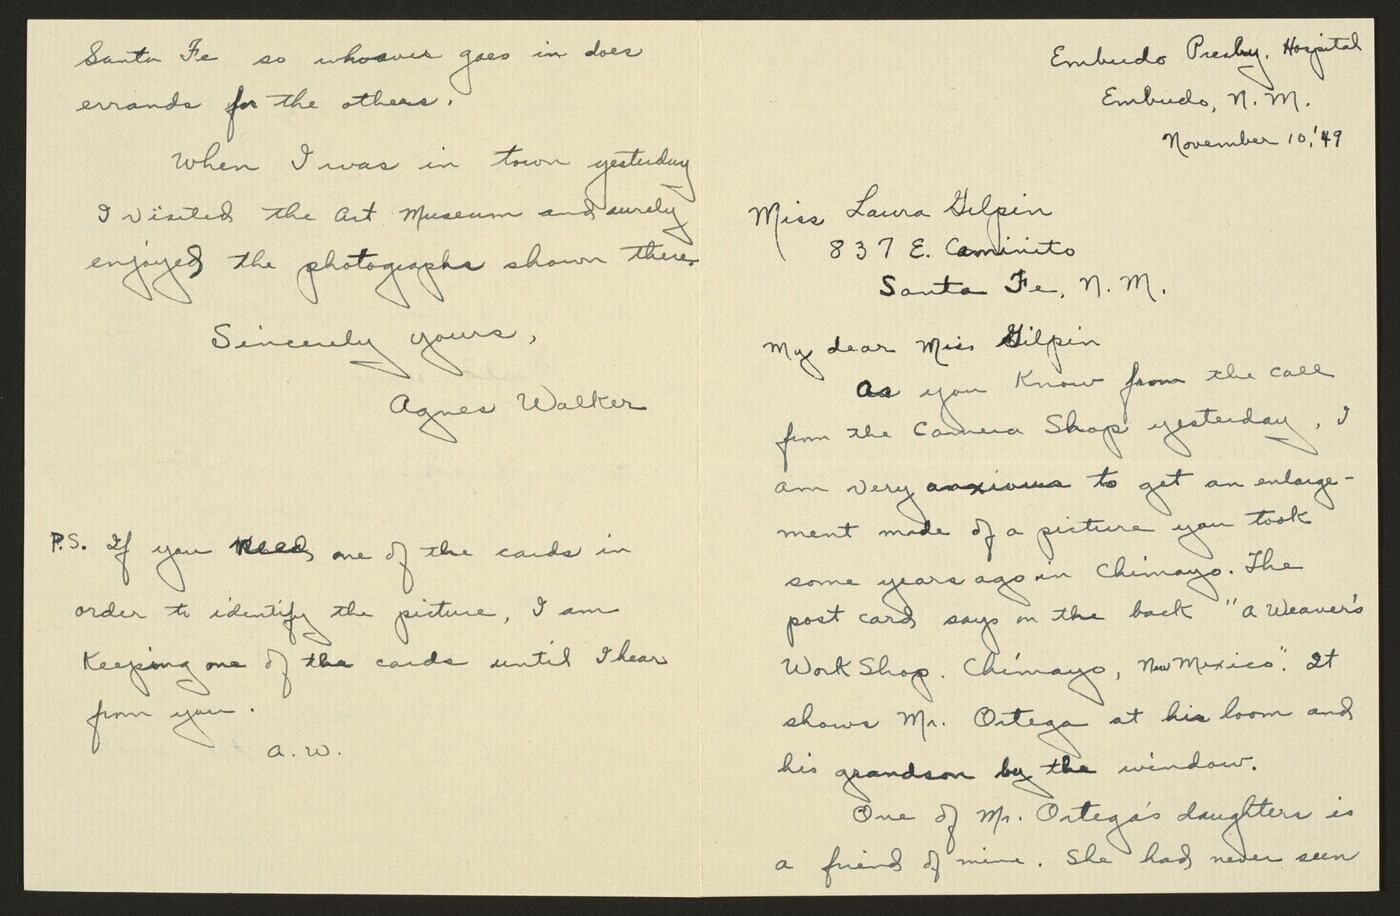 Embudo Presby. Hospital
Embudo, N. M.
November 10, '49
Miss Laura Gilpin
837 E. Caminito
Santa Fe, N. M.
My dear Miss Gilpin
As you know from the call
from the Camera Shop yesterday, I
am very anxious to get an enlarge-
ment made of a picture you took
some years ago in Chimayo. The
post card says on the back "A Weaver's
Work Shop. Chimayo, New Mexico". It
shows Mr. Ortega at his loom and
his grandson by the window.
One of Mr. Ortega's daughters is
a friend of mine. She had never seen
Santa Fe so whoever goes in does
errands for the others.
When I was in town yesterday
I visited the Art Museum and surely
enjoyed the photographs shown there.
Sincerely yours,
Agnes Walker
P.S. If you need one of the cards in
order to identify the picture, I am
keeping one of the cards until I hear
from you.
A. W.